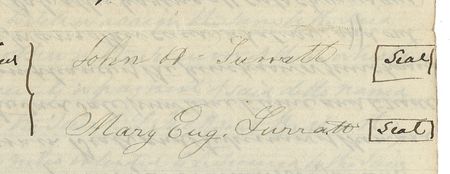 John H. Surratt Seal
Mary Eug. Surratt Seal